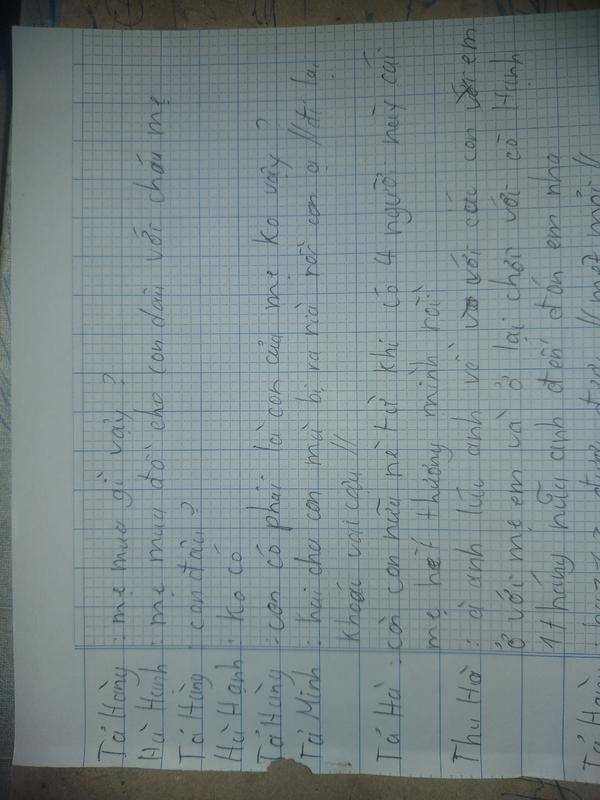 Tá Hàng : mẹ mua gì vậy ?
Hà Hành : mẹ mua đồ cho con dâu với cháu mẹ
Tá Hùng : con đâu ?
Hà Hạnh : ko có
Tá Hùng : con có phải là con của mẹ ko vậy ?
Tá Minh : hai cha con mà bị ra rìa rồi con ạ // đi lại
khoác vai cậu //
Tá Hà : còn con nữa nè từ khi có 4 người này cái
mẹ hết thương mình rồi
Thu Hà : à anh lúc anh về với các con em
ở với mẹ em và ở lại chơi với cô Hạnh
1 tháng nữa anh đến đón em nha
Tá Hàng
// mệt mỏi //